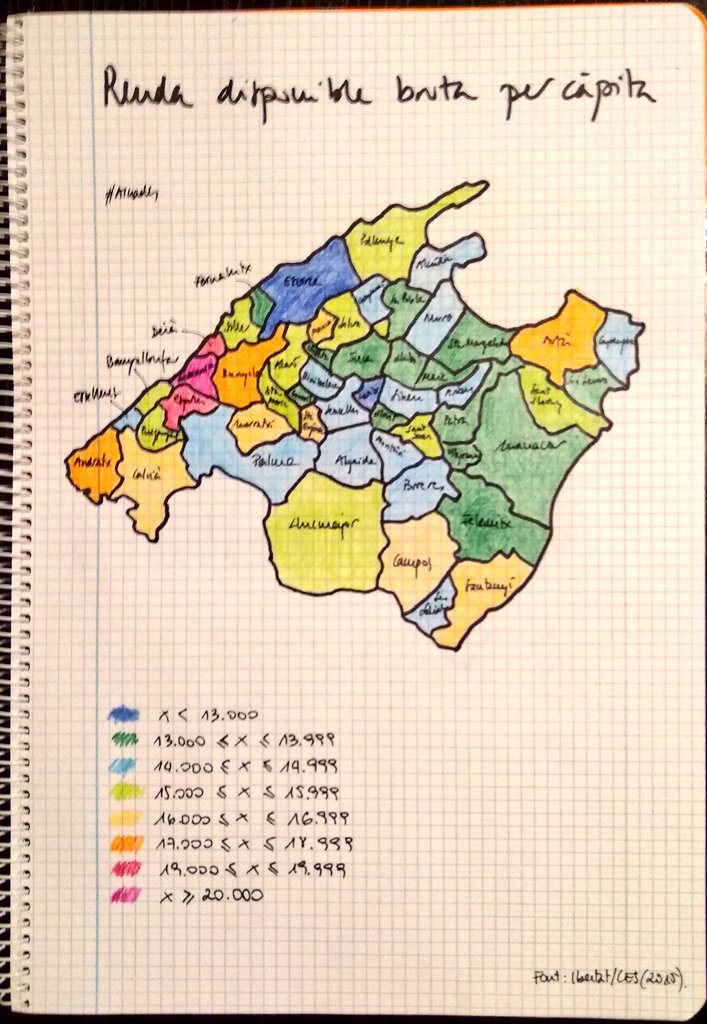 Renda disponible bruta per càpita
Pollença
Alcúdia
Fornalutx
Escorca
Sa Pobla
Muro
Sóller
Selva
Deià
Sta. Margalida
Artà
Capdepera
Banyalbufar
Bunyola
Alaró
Inca
Llubí
Maria
Son Servera
Binissalem
Sineu
Estellencs
Esporles
Sant Llorenç
Puigpunyent
Sta. Maria
Sencelles
Petra
Manacor
Marratxí
Sta. Eugènia
Sant Joan
Andratx
Calvià
Palma
Algaida
Montuïri
Porreres
Llucmajor
Felanitx
Campos
Santanyí
Ses Salines
x < 13.000
13.000 ≤ x ≤ 13.999
14.000 ≤ x ≤ 14.999
15.000 ≤ x ≤ 15.999
16.000 ≤ x ≤ 16.999
17.000 ≤ x ≤ 18.999
19.000 ≤ x ≤ 19.999
x ≥ 20.000
Font: Ibestat/CES (2015).